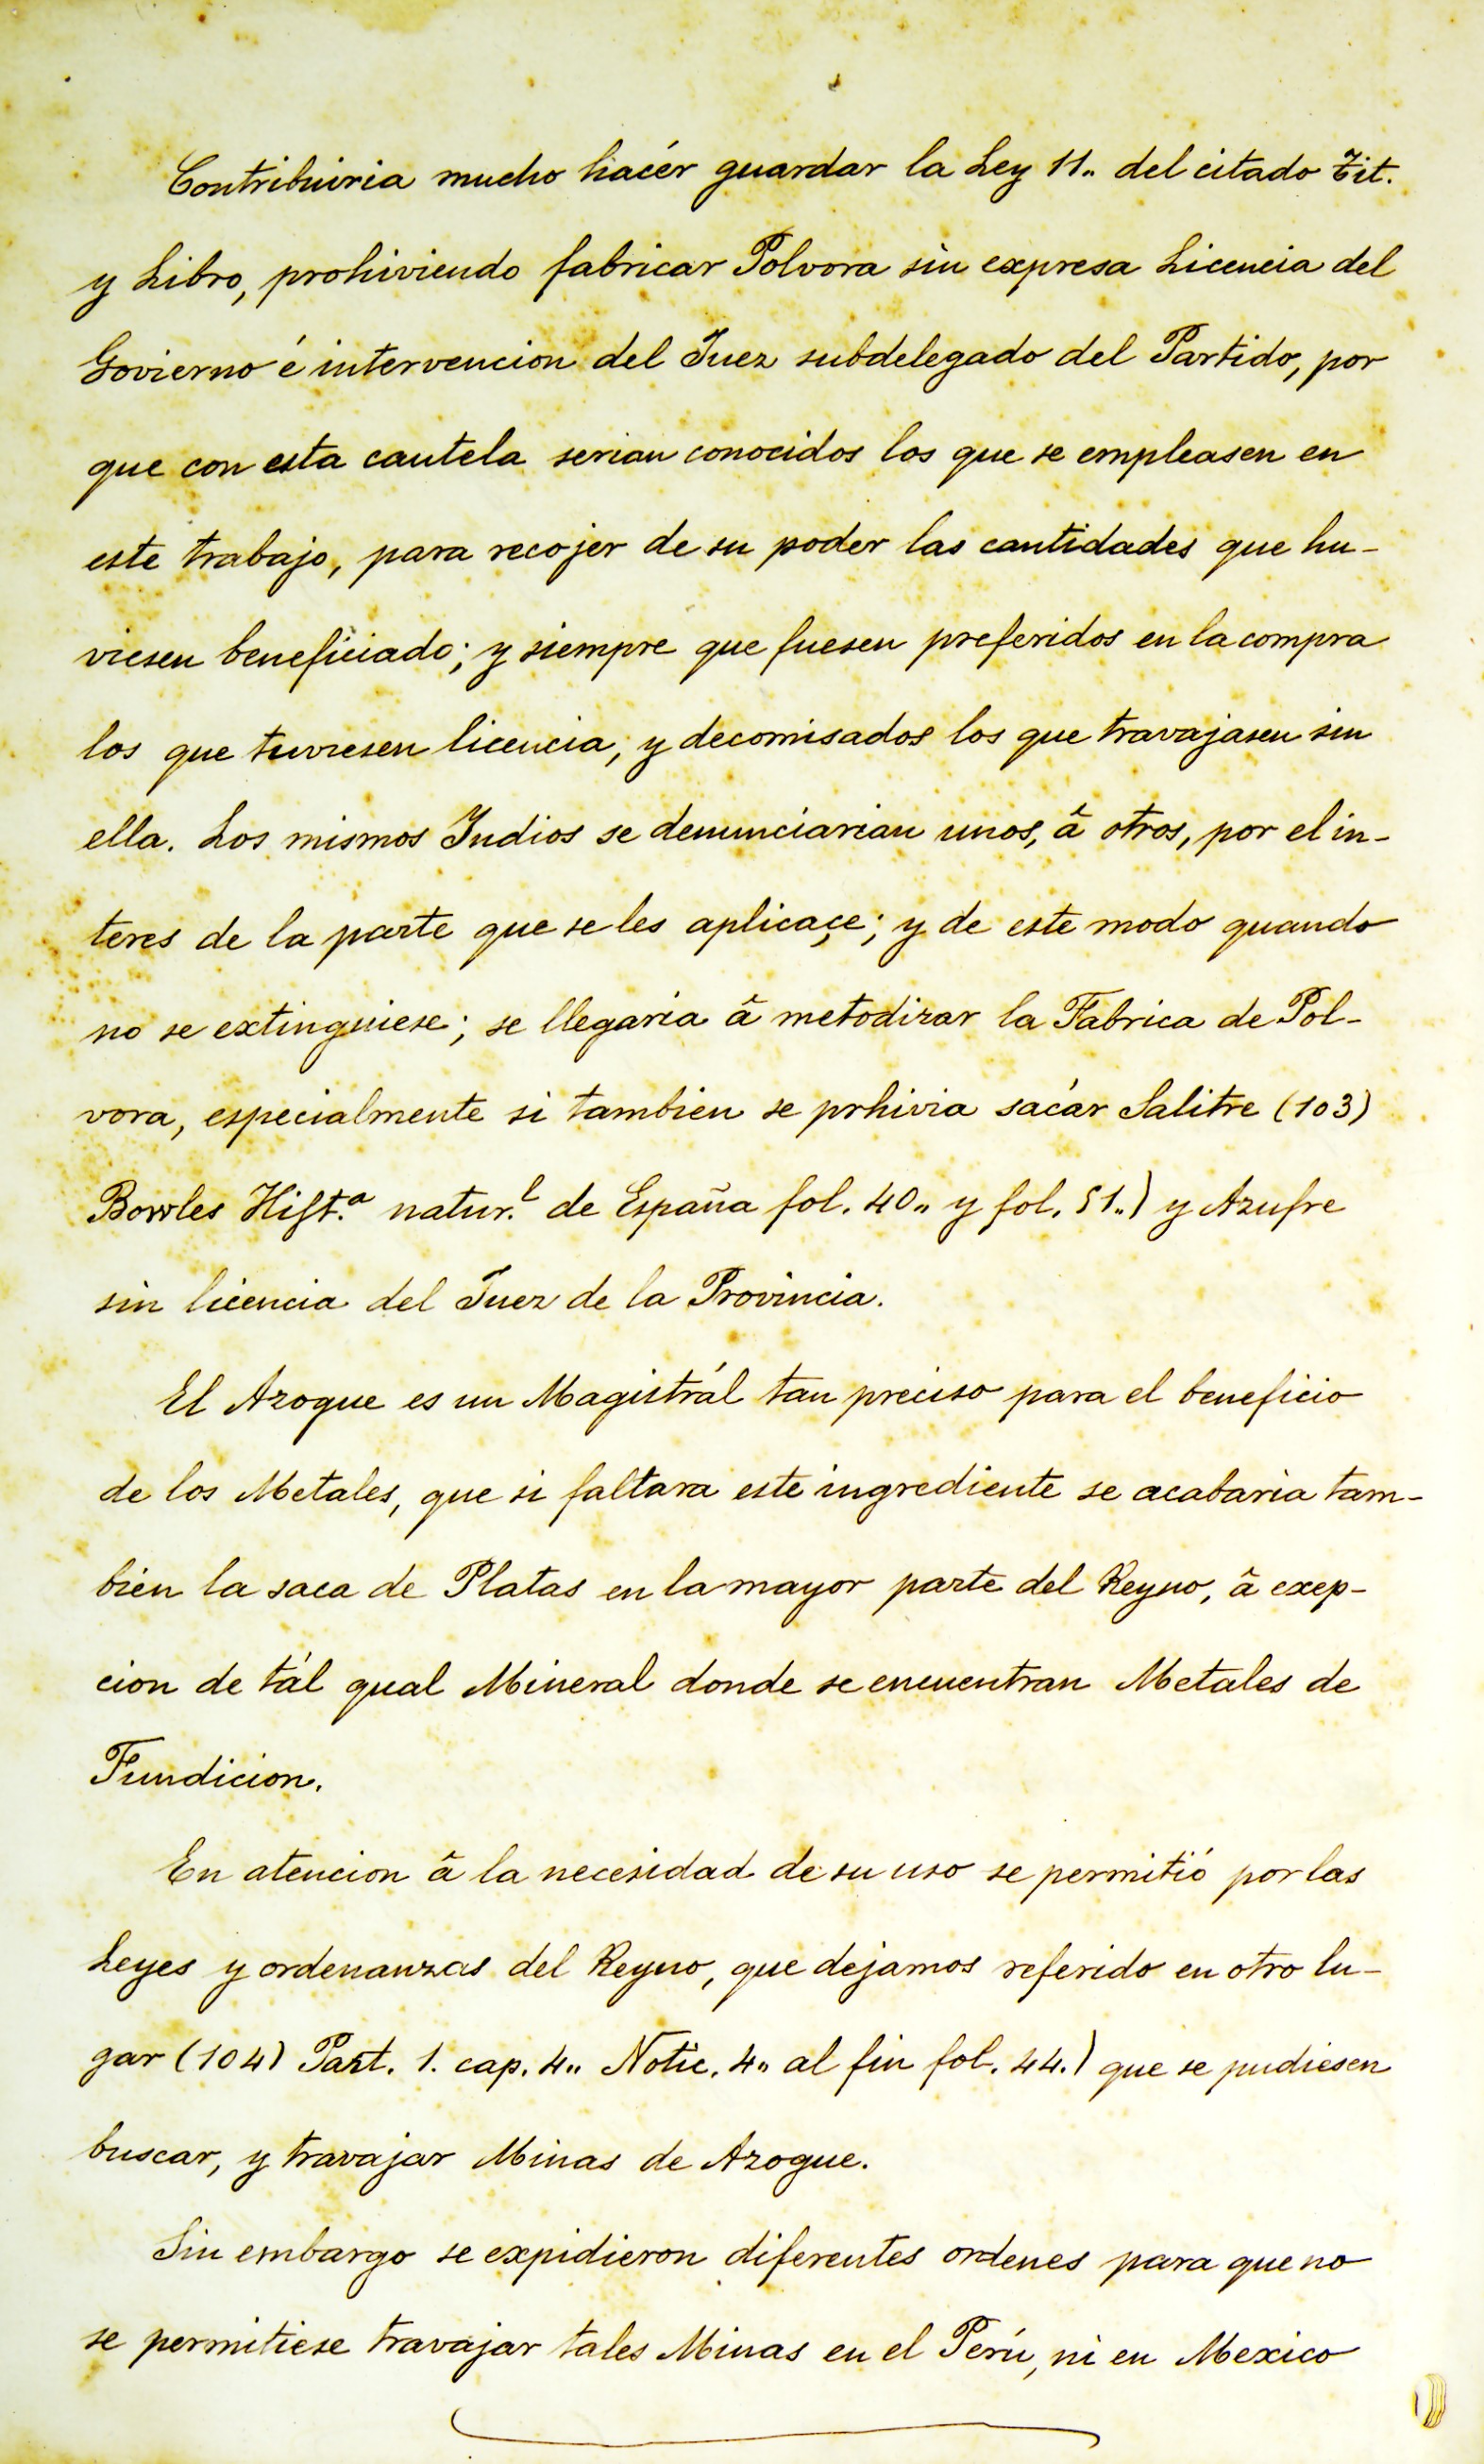 Contribuiria mucho hacér guardar la Ley 11„ del citado Tit.
y Libro, prohiviendo fabricar Polvora sin expresa Licencia del
Govierno é intervencion del Juez subdelegado del Partido, por
que con esta cautela serian conocidos los que se empleasen en
este trabajo, para recojer de su poder las cantidades que hu-
viesen beneficiado; y siempre que fuesen preferidos en la compra
los que tuviesen licencia, y decomisados los que travajasen sin
ella. Los mismos Indios se denunciarian unos, â otros, por el in-
teres de la parte que se les aplicaçe; y de este modo quando
no se extinguiese; se llegaria â metodizar la Fabrica de Pol-
vora, especialmente si tambien se prhivia sacár Salitre (103)
Bowles Hist.ª natur.l de España fol. 40„ y fol. 51„) y Azufre
sin licencia del Juez de la Provincia.
El Azogue es un Magistrál tan preciso para el beneficio
de los Metales, que si faltara este ingrediente se acabaria tam-
bien la saca de Platas en la mayor parte del Reyno, â exep-
cion de tál qual Mineral donde se encuentran Metales de
Fundicion.
En atencion â la necesidad de su uso se permitió por las
Leyes y ordenanzas del Reyno, que dejamos referido en otro lu-
gar (104) Part. 1. cap. 4„ Notic. 4„ al fin fol. 44.) que se pudiesen
buscar, y travajar Minas de Azogue.
Sin embargo se expidieron diferentes ordenes para que no
se permitiese travajar tales Minas en el Perú, ni en Mexico